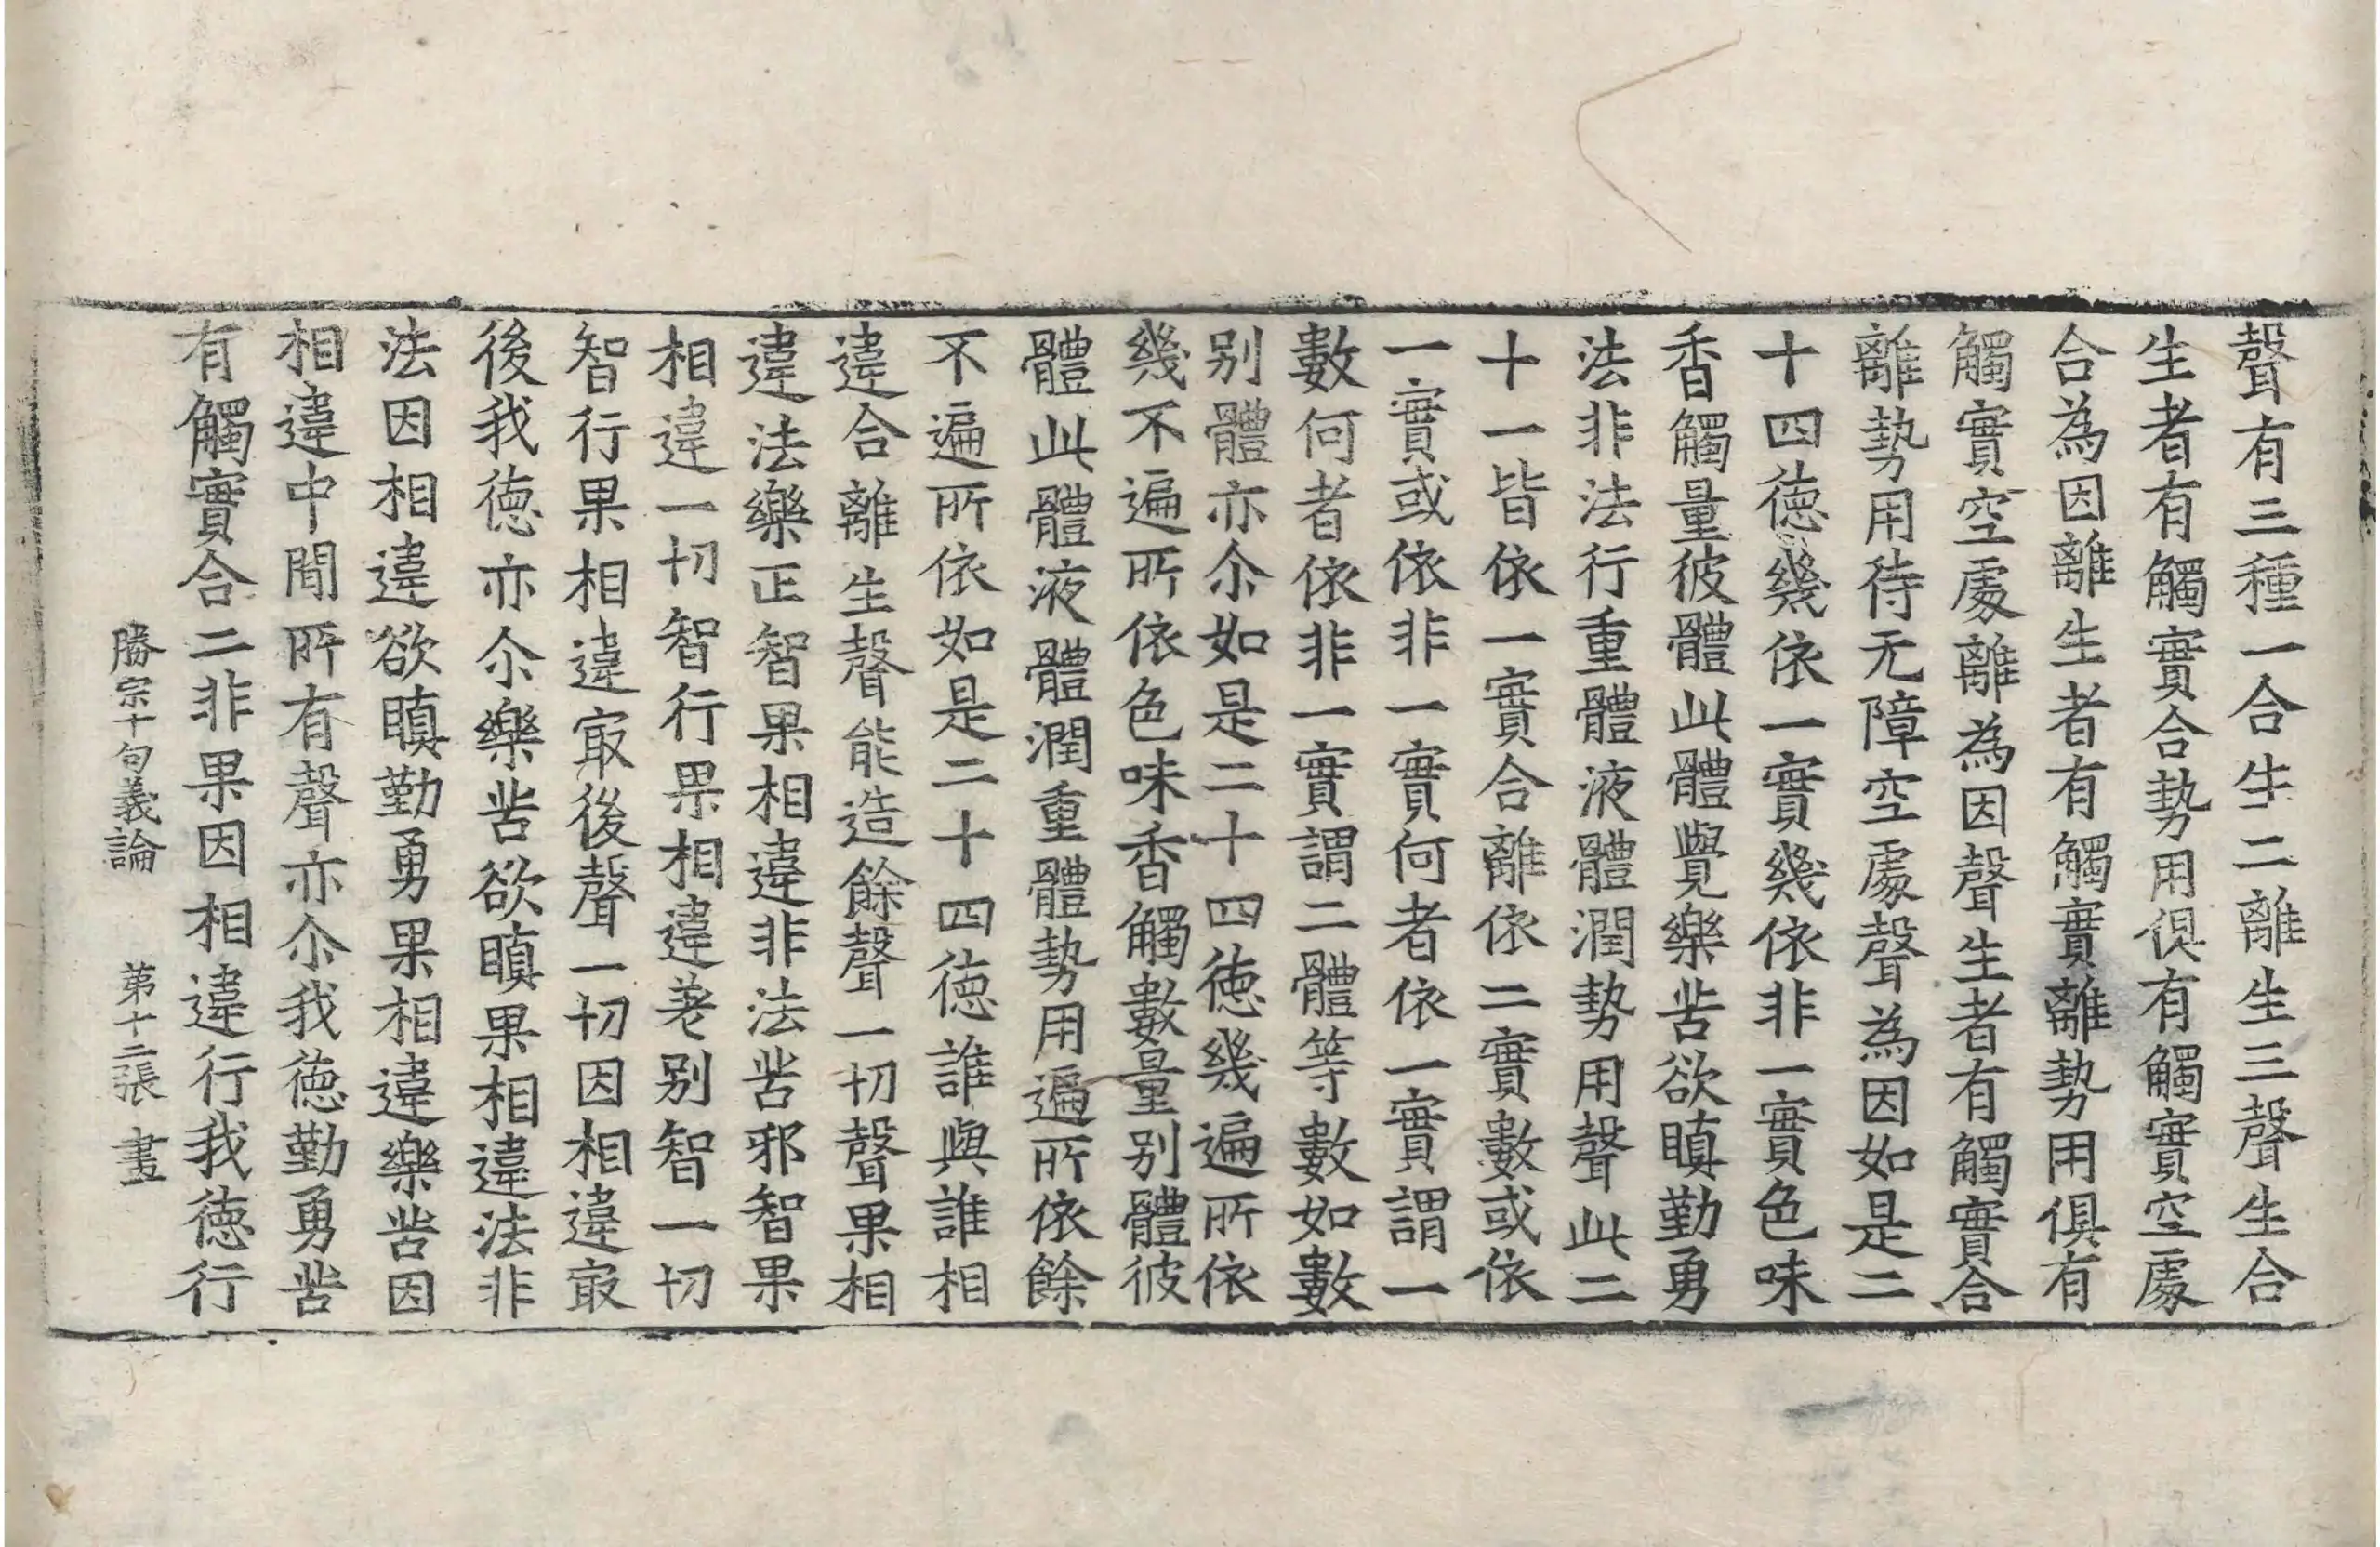 聲有三種一合生二離生三聲生合
生者有觸實合勢用俱有觸實空處
合為因離生者有觸實離勢用俱有
觸實空處離為因聲生者有觸實合
離勢用待无障空處聲為因如是二
十四德幾依一實幾依非一實色味
香觸量彼體此體覺樂苦欲瞋勤勇
法非法行重體液體潤勢用聲此二
十一皆依一實合離依二實數或依
一實或依非一實何者依一實謂一
數何者依非一實謂二體等數如數
别體亦尒如是二十四德幾遍所依
幾不遍所依色味香觸數量别體彼
體此體液體潤重體勢用遍所依餘
不遍所依如是二十四德誰與誰相
違合離生聲能造餘聲一切聲果相
違法樂正智果相違非法苦邪智果
相違一切智行果相違差别智一切
智行果相違㝡後聲一切因相違㝡
後我德亦尒樂苦欲瞋果相違法非
法因相違欲瞋勤勇果相違樂苦因
相違中間所有聲亦尒我德勤勇苦
有觸實合二非果因相違行我德行
勝宗十句義論 第十二張 畫